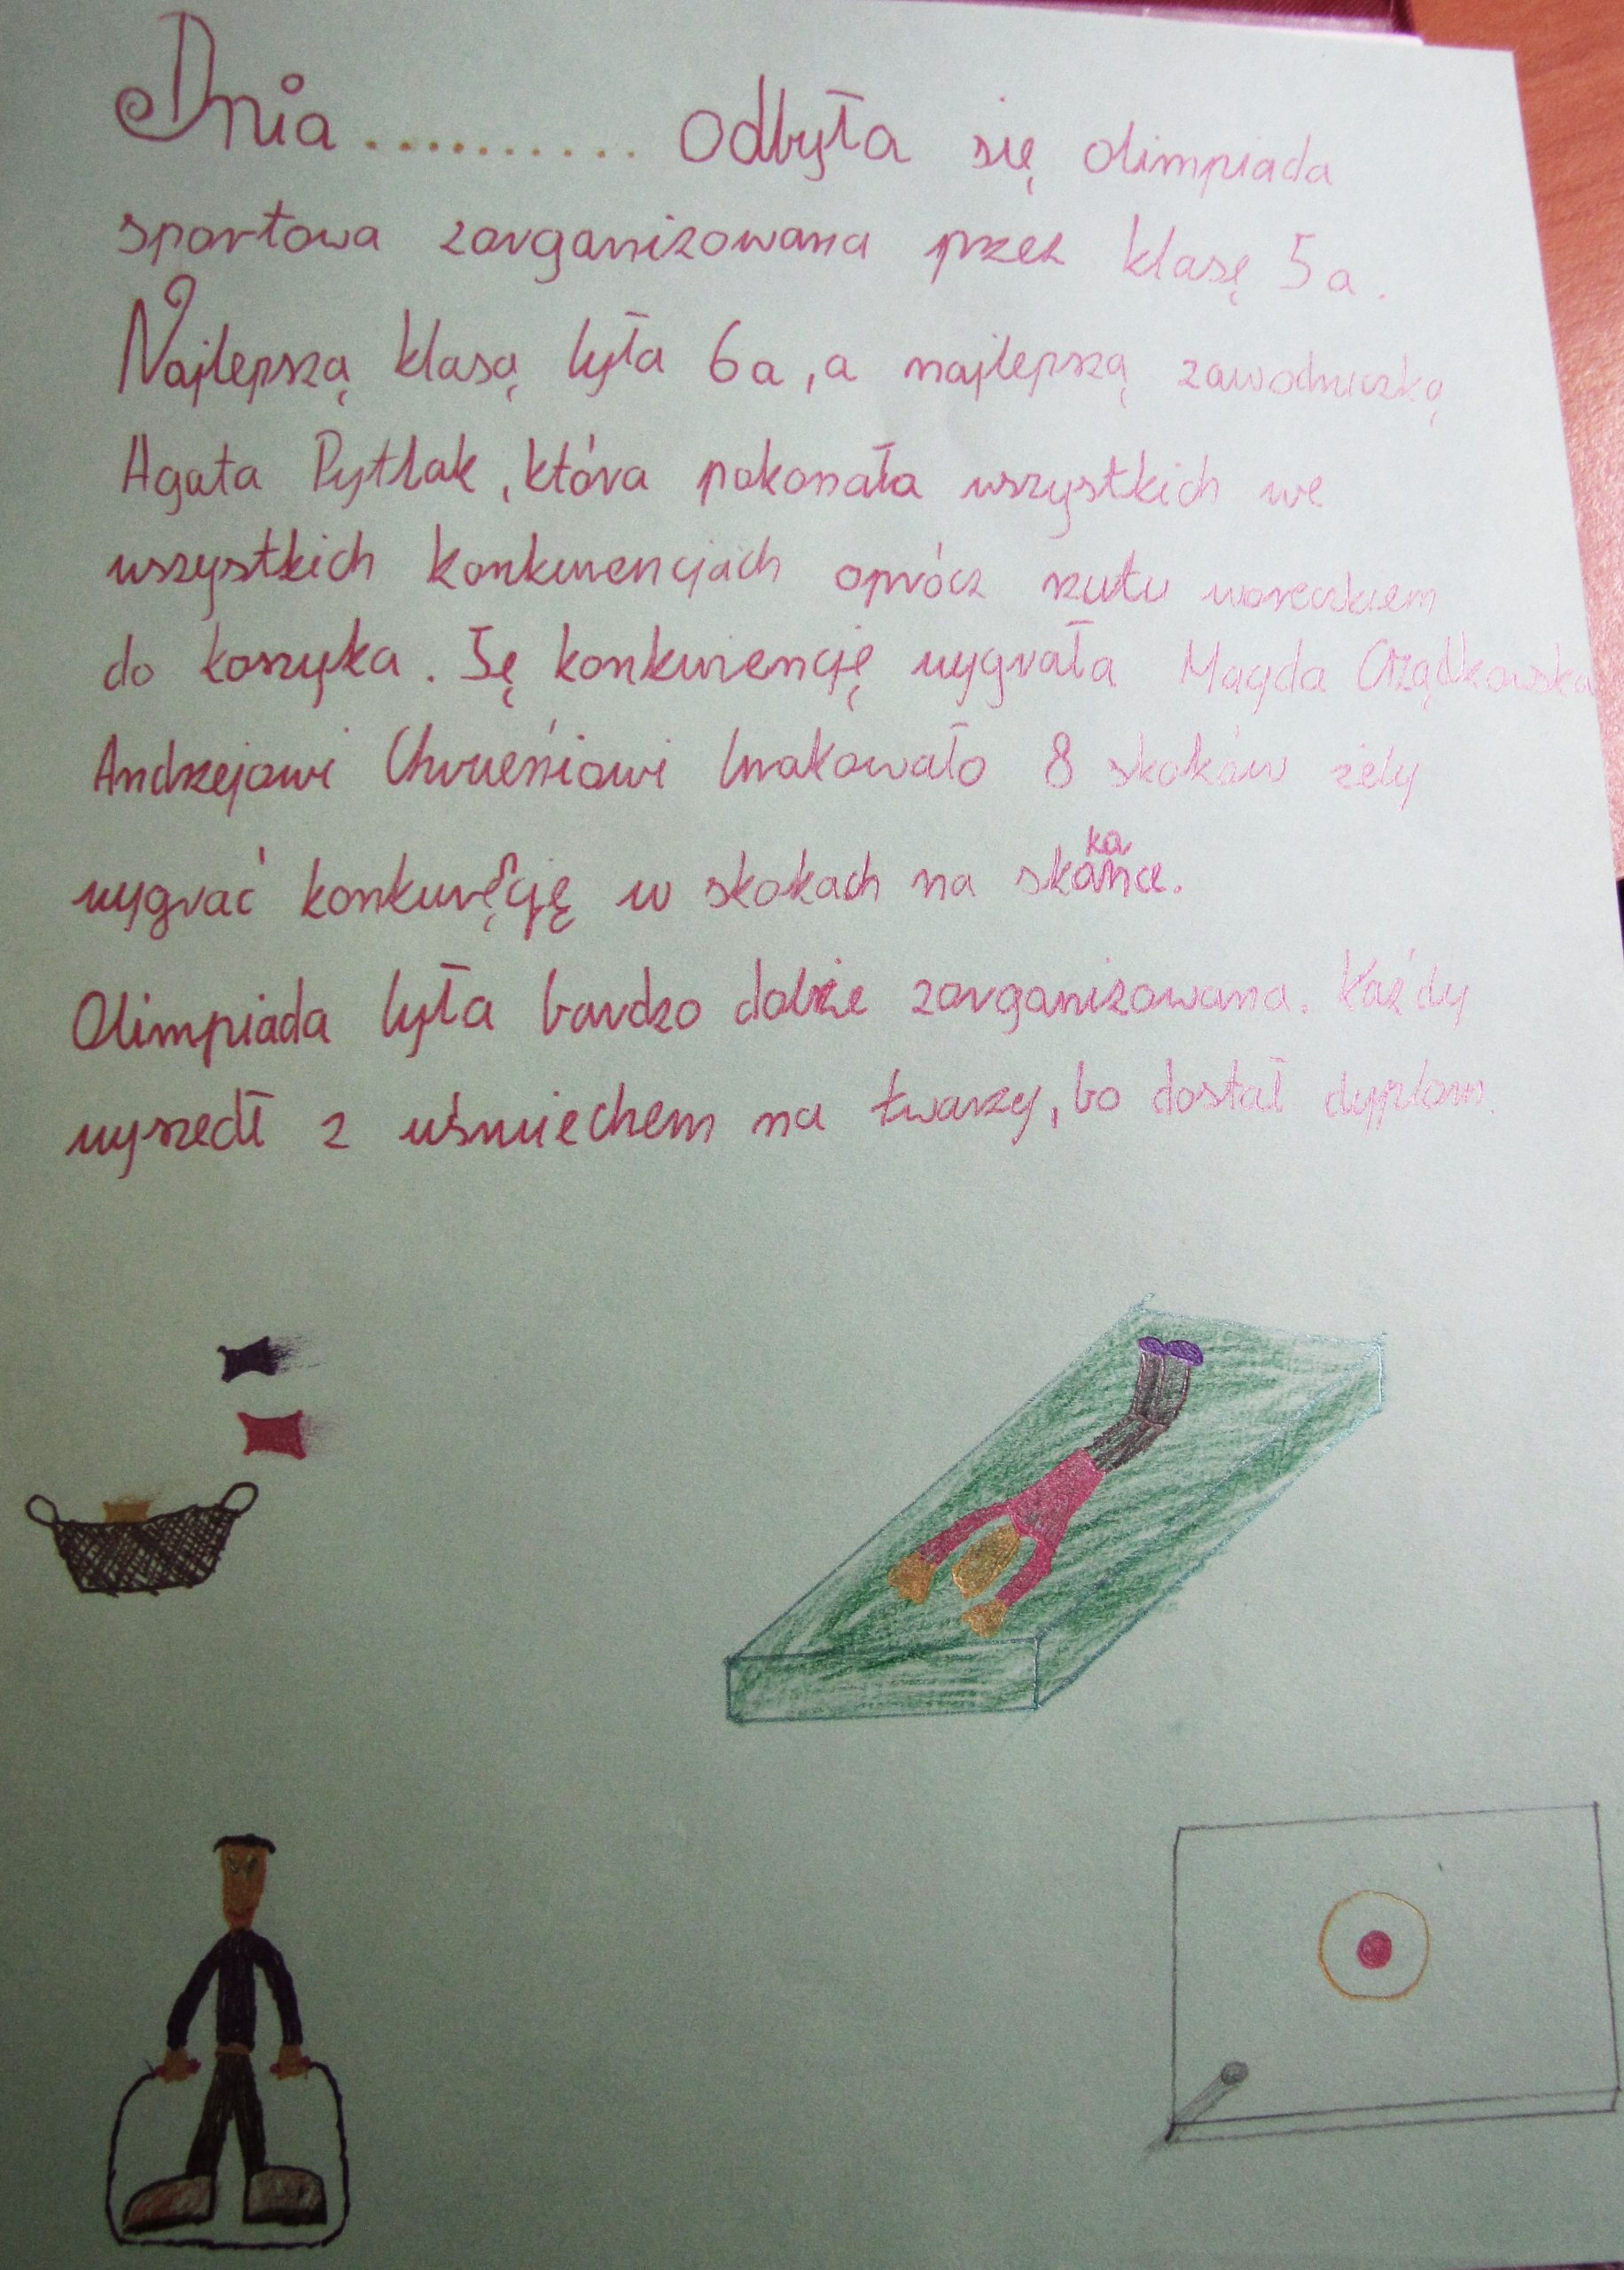 Dnia .......... odbyła się olimpiada
sportowa zorganizowana przez klasę 5a.
Najlepszą klasą była 6a, a najlepszą zawodniczką
Agata Pytlak, która pokonała wszystkich we
wszystkich konkurencjach oprócz rzutu woreczkiem
do koszyka. Tę konkurencję wygrała Magda
Andrzejowi brakowało 8 skoków żeby
wygrać w skokach na skakance.
Olimpiada była bardzo dobrze zorganizowana. Każdy
wyszedł z uśmiechem na twarzy, bo dostał dyplom.